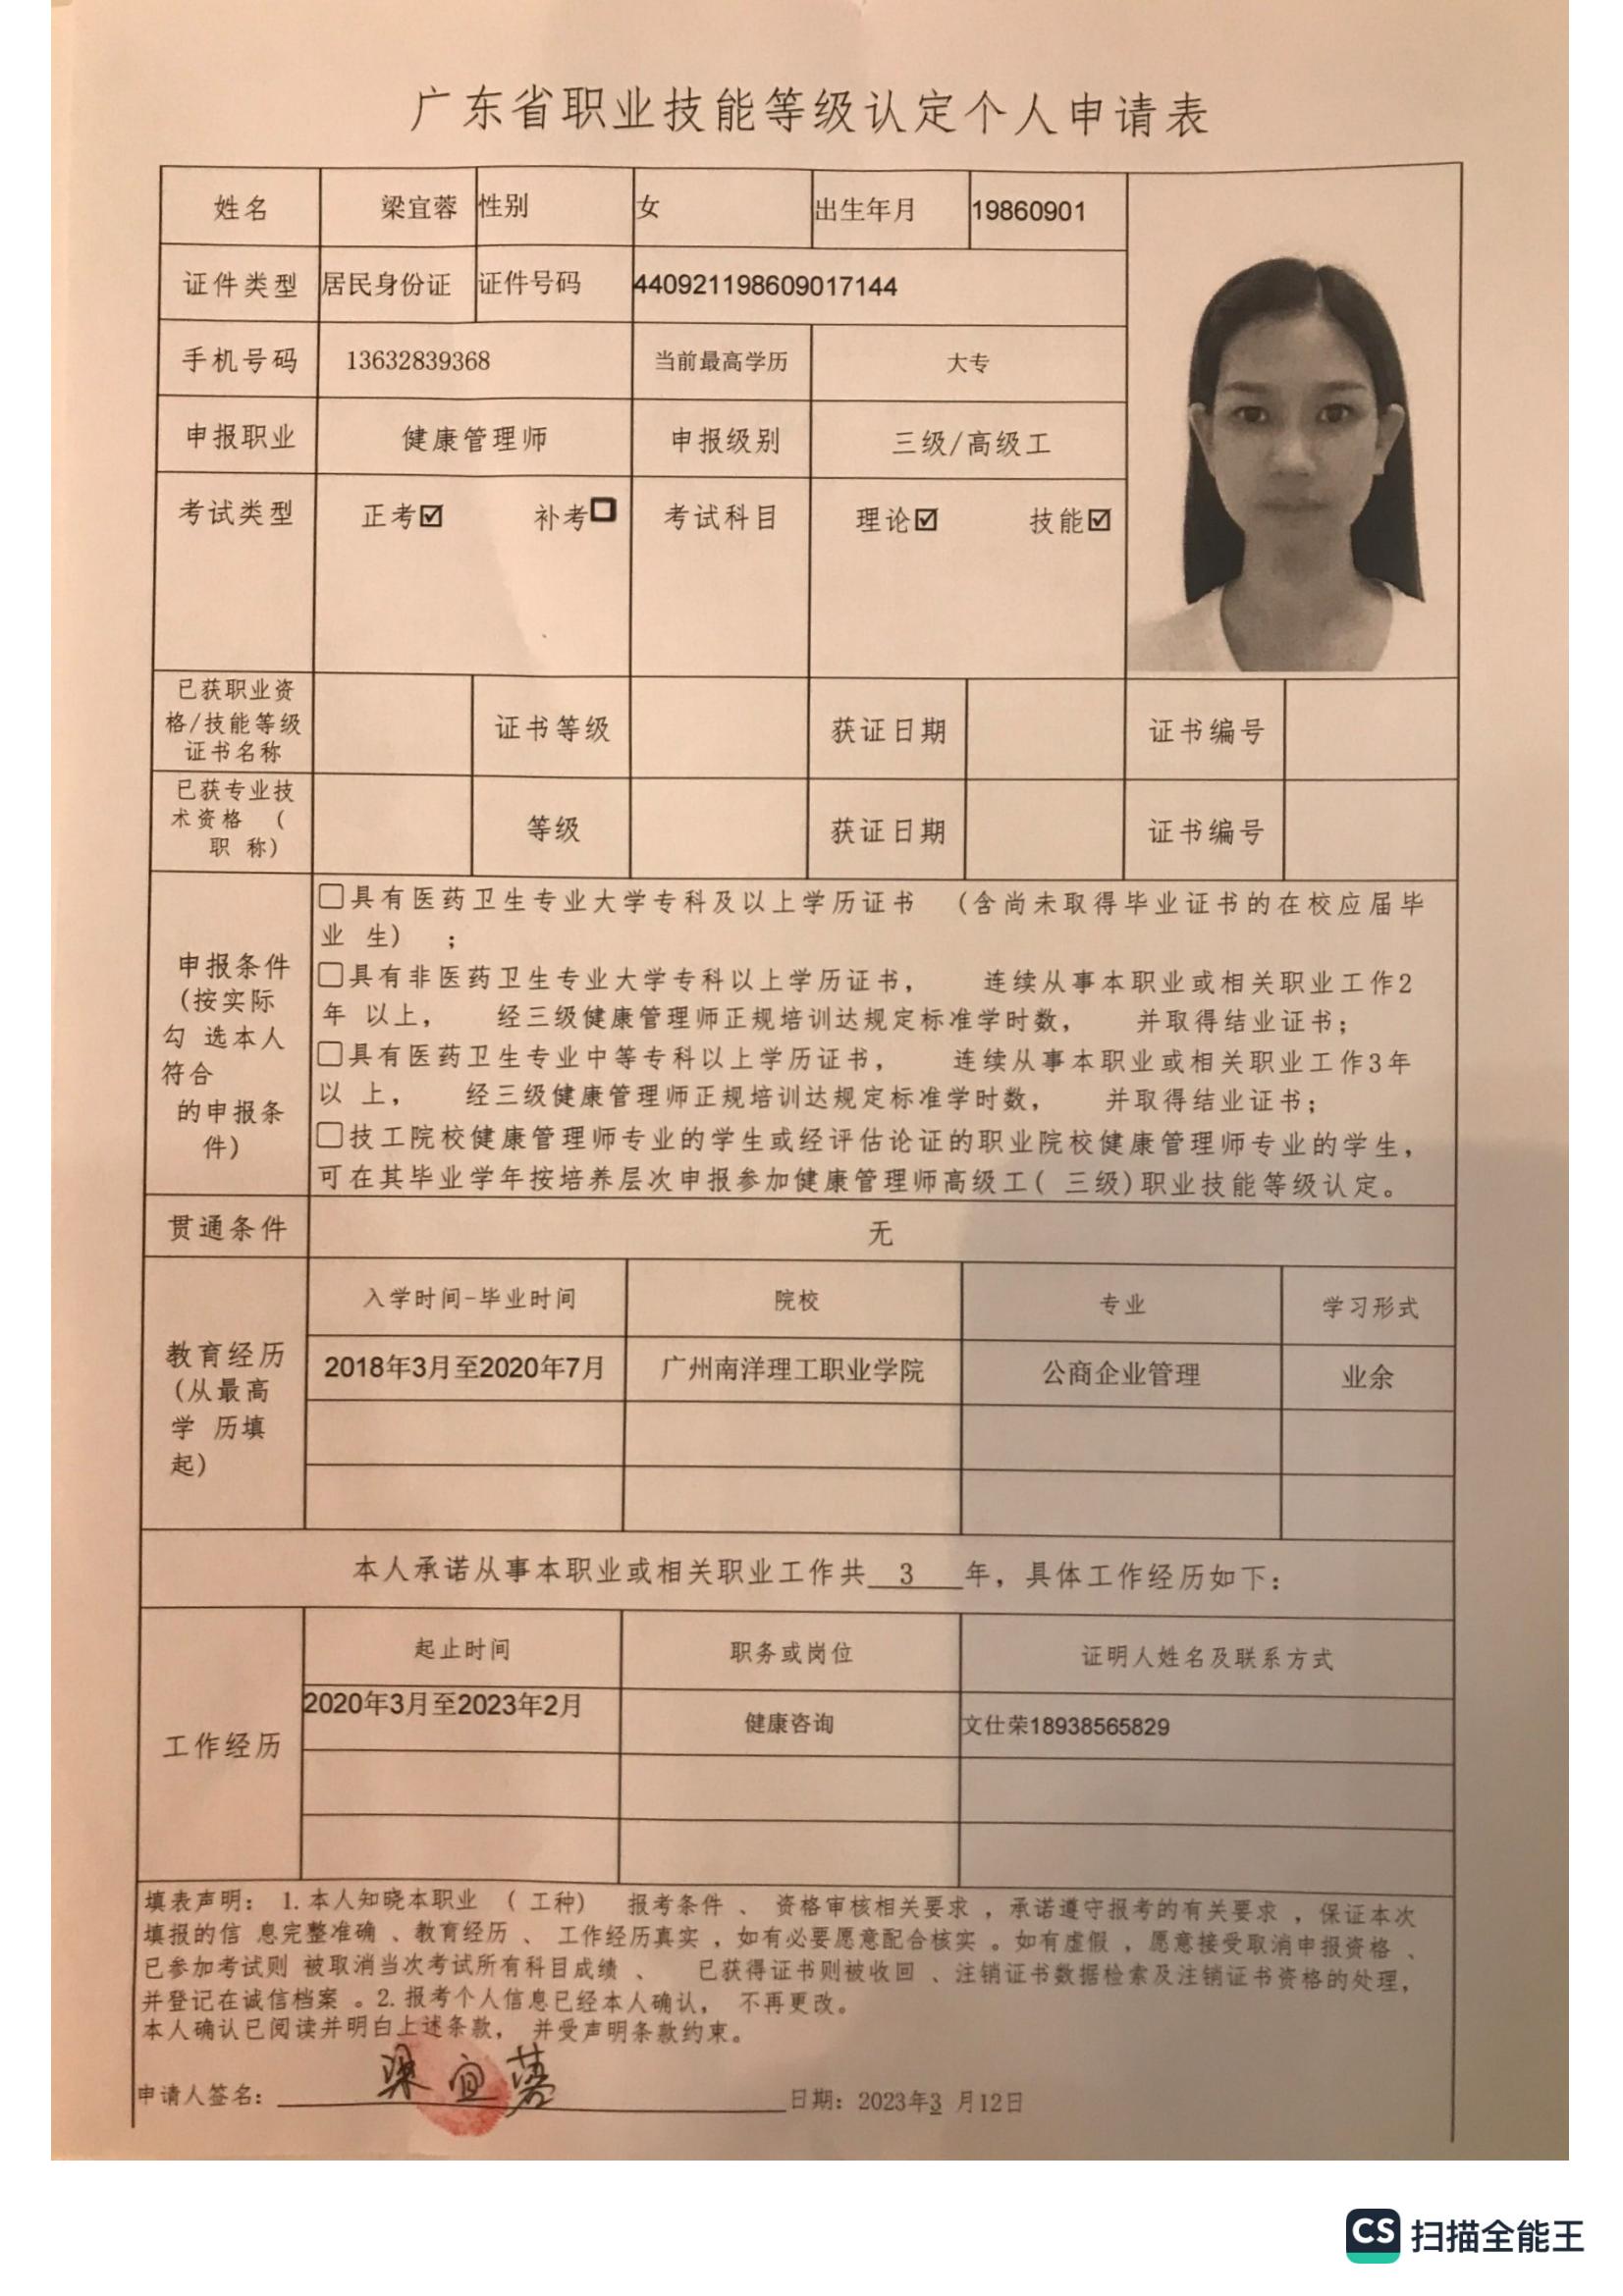 广东省职业技能等级认定个人申请表
姓名 梁宜蓉 性别 女 出生年月 19860901
证件类型 居民身份证 证件号码 440921198609017144
手机号码 13632839368 当前最高学历 大专
申报职业 健康管理师 申报级别 三级/高级工
考试类型 正考☑ 补考☐ 考试科目 理论☑ 技能☑
已获职业资
格/技能等级
证书名称
证书等级 获证日期 证书编号
已获专业技
术资格 (
职 称)
等级 获证日期 证书编号
申报条件
(按实际
勾 选本人
符合
的申报条
件)
☐具有医药卫生专业大学专科及以上学历证书 (含尚未取得毕业证书的在校应届毕
业 生) ;
☐具有非医药卫生专业大学专科以上学历证书, 连续从事本职业或相关职业工作2
年 以上, 经三级健康管理师正规培训达规定标准学时数, 并取得结业证书;
☐具有医药卫生专业中等专科以上学历证书, 连续从事本职业或相关职业工作3年
以 上, 经三级健康管理师正规培训达规定标准学时数, 并取得结业证书;
☐技工院校健康管理师专业的学生或经评估论证的职业院校健康管理师专业的学生,
可在其毕业学年按培养层次申报参加健康管理师高级工( 三级)职业技能等级认定。
贯通条件 无
教育经历
(从最高
学 历填
起)
入学时间-毕业时间 院校 专业 学习形式
2018年3月至2020年7月 广州南洋理工职业学院 公商企业管理 业余
本人承诺从事本职业或相关职业工作共 3 年, 具体工作经历如下:
工作经历
起止时间 职务或岗位 证明人姓名及联系方式
2020年3月至2023年2月 健康咨询 文仕荣18938565829
填表声明: 1.本人知晓本职业 ( 工种) 报考条件 、 资格审核相关要求 , 承诺遵守报考的有关要求 , 保证本次
填报的信 息完整准确 、教育经历 、 工作经历真实 , 如有必要愿意配合核实 。如有虚假 , 愿意接受取消申报资格 、
已参加考试则 被取消当次考试所有科目成绩 、 已获得证书则被收回 、注销证书数据检索及注销证书资格的处理,
并登记在诚信档案 。2. 报考个人信息已经本人确认, 不再更改。
本人确认已阅读并明白上述条款, 并受声明条款约束。
申请人签名: 梁宜蓉 日期: 2023年3 月12日
CS 扫描全能王